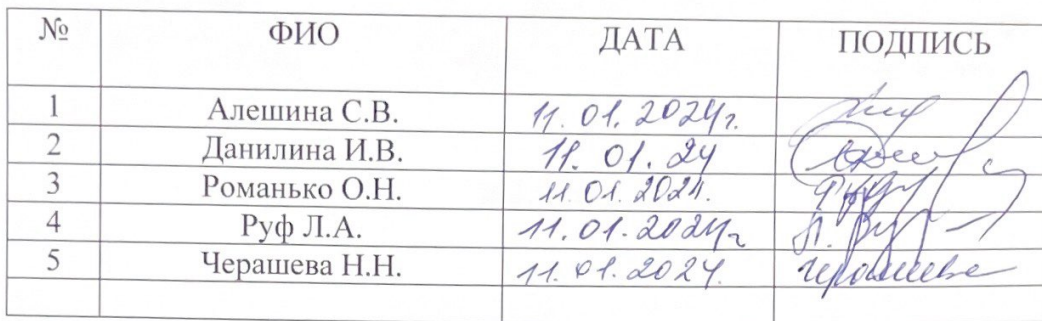 № ФИО ДАТА ПОДПИСЬ
1 Алешина С.В. 11.01.2024г.
2 Данилина И.В. 11.01.24
3 Романько О.Н. 11.01.2024.
4 Руф Л.А. 11.01.2024г Л. Руф
5 Черашева Н.Н. 11.01.2024. Черашева